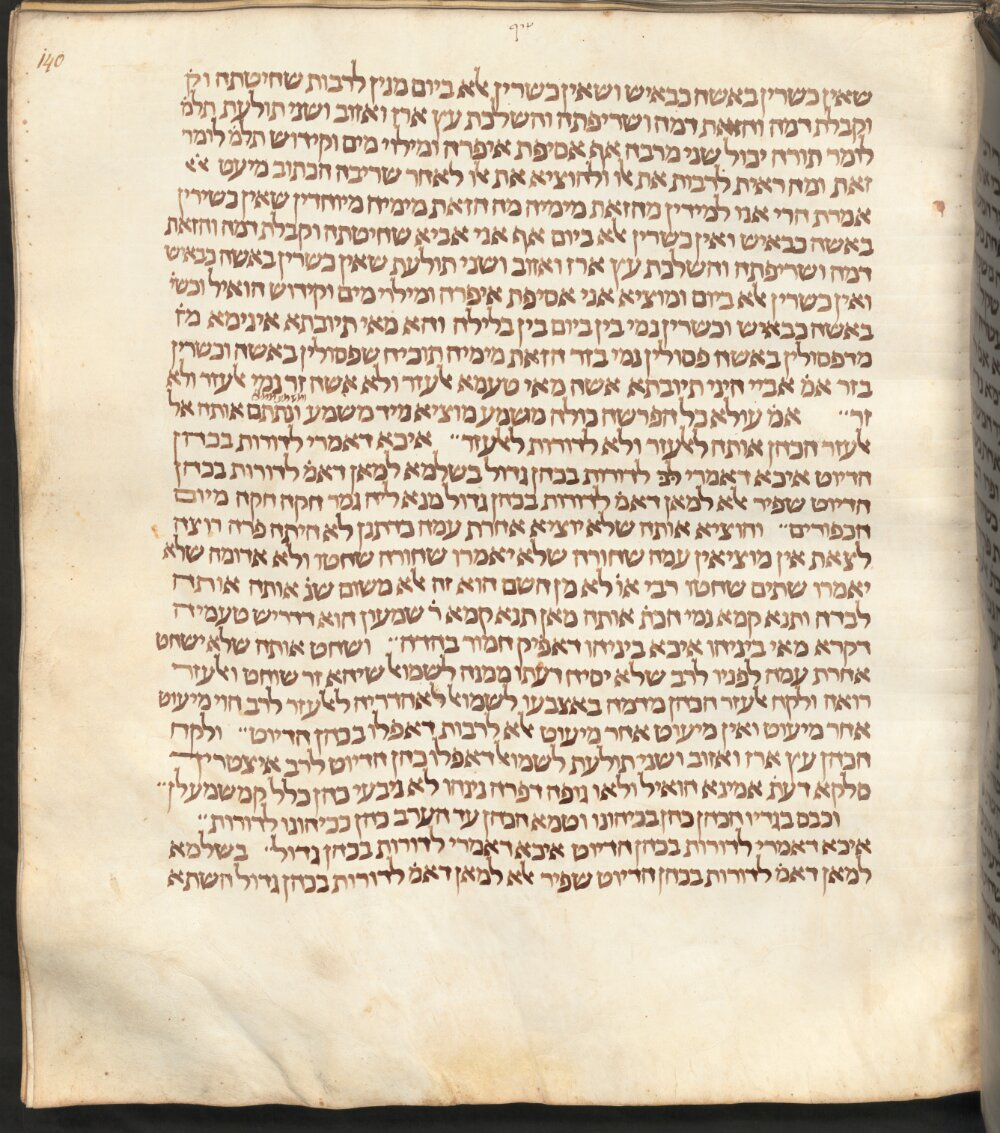 140
שאין כשרין באשה כבאיש ושאין כשרין אלא ביום מנין לרבות שחיטתה וק
וקבלת דמה והזאת דמה ושריפתה והשלכת עץ ארז ואזוב ושני תולעת תלמ׳
לומר תורה יכול שני מרבה אף אסיפת איפרה ומילוי מים וקידוש תלמ׳ לומר
זאת ומה ראית לרבות את אלו ולהוציא את אלו לאחר שריבה הכתוב מיעט
אמרת הרי אנו למידין מהזאת מימיה מה הזאת מימיה מיוחדין שאין כשירין
באשה כבאיש ואין כשרין אלא ביום אף אני אביא שחיטתה וקבלת דמה והזאת
דמה ושריפתה והשלכת עץ ארז ואזוב ושני תולעת שאין כשרין באשה כבאיש
ואין כשרין אלא ביום ומוציא אני אסיפת איפרה ומילוי מים וקידוש הואיל וכש׳
באשה כבאיש וכשרין נמי בין ביום בין בלילה והא מאי תיובתא אינימא מד
מדפסולין באשה פסולין נמי בזר הזאת מימיה תוכיח שפסולין באשה וכשרין
בזר אמ׳ אביי היני תיובתא אשה מאי טעמא אלעזר ולא אשה זר נמי אלעזר ולא
זר׳׳ אמ׳ עולא כל הפרשה כולה משמע מוציא מיד משמע ונתתם אותה אל
אלעזר הכהן אותה לאלעזר ולא לדורות לאלעזר׳׳ איכא דאמרי לדורות בכהן
הדיוט איכא דאמרי לדורות בכהן גדול בשלמא למאן דאמ׳ לדורות בכהן
הדיוט שפיר אלא למאן דאמ׳ לדורות בכהן גדול מנא ליה גמר חקה חקה מיום
הכפורים׳׳ והוציא אותה שלא יוציא אחרת עמה כדתנן לא היתה פרה רוצה
לצאת אין מוציאין עמה שחורה שלא יאמרו שחורה שחטו ולא אדומה שלא
יאמרו שתים שחטו רבי או׳ לא מן השם הוא זה אלא משום שנ׳ אותה אותה
לבדה ותנא קמא נמי הכת׳ אותה מאן תנא קמא ר׳ שמעון הוא דדריש טעמיה
דקרא מאי ביניהו איכא ביניהו דאפיק חמור בהדה׳׳ ושחט אותה שלא ישחט
אחרת עמה לפניו לרב שלא יסיח דעתו ממנה לשמואל שיהא זר שוחט ואלעזר
רואה ולקח אלעזר הכהן מדמה באצבעו לשמואל לאהדריה לאלעזר לרב הוי מיעוט
אחר מיעוט ואין מיעוט אחר מיעוט אלא לרבות דאפלו בכהן הדיוט׳׳ ולקח
הכהן עץ ארז ואזוב ושני תולעת לשמואל דאפלו כהן הדיוט לרב איצטריך
סלקא דעת׳ אמינא הואיל ולאו גופה דפרה נינהו לא ניבעי כהן כלל קמשמע לן׳׳
וכבס בגדיו הכהן כהן בכיהונו וטמא הכהן עד הערב כהן בכיהונו לדורות׳׳
איכא דאמרי לדורות בכהן הדיוט איכא דאמרי לדורות בכהן גדול׳ בשלמא
למאן דאמ׳ לדורות בכהן הדיוט שפיר אלא למאן דאמ׳ לדורות בכהן גדול השתא